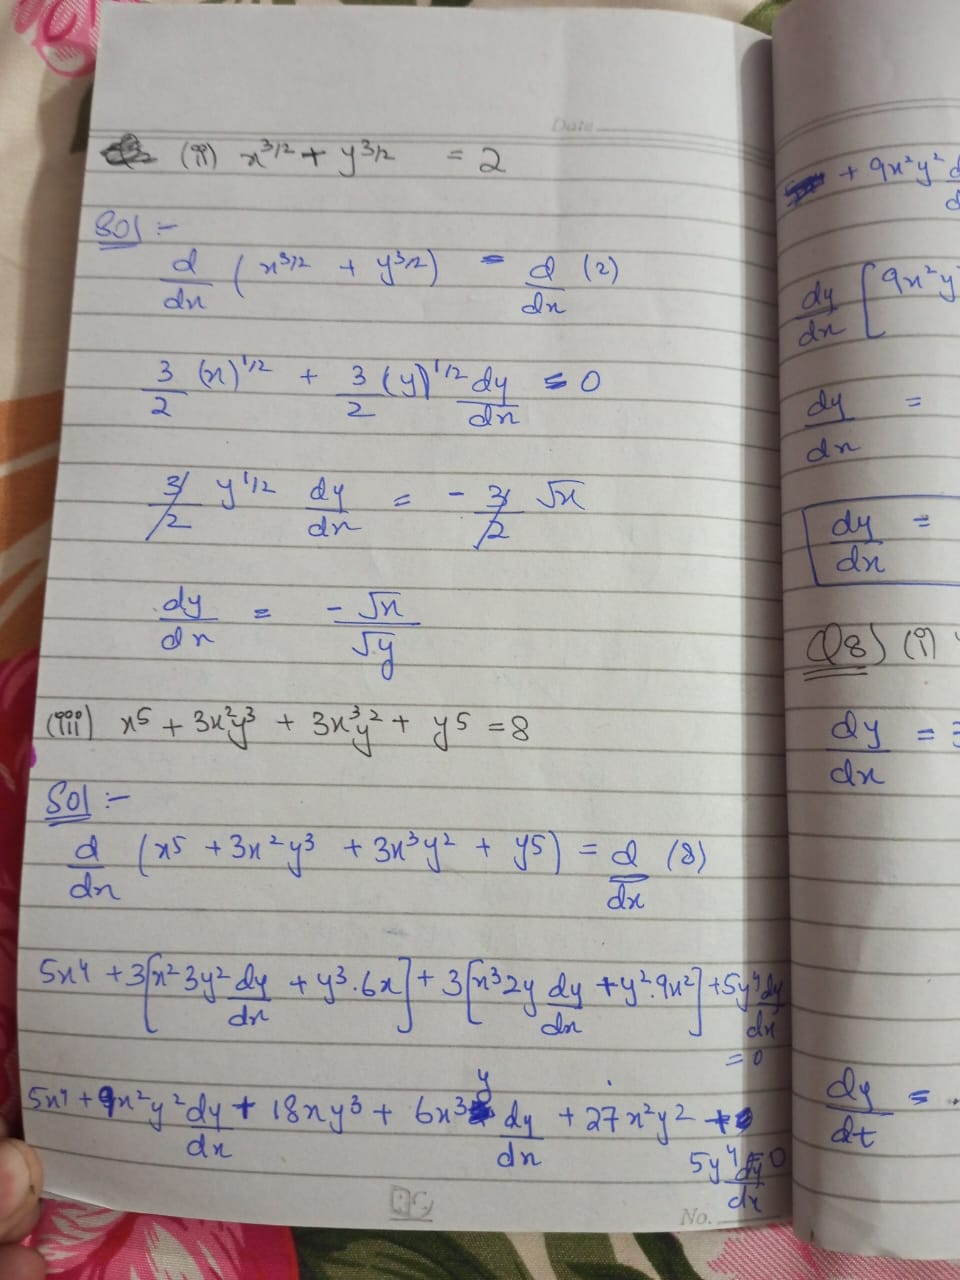 Date
(ii) x^3/2 + y^3/2 = 2
Sol :-
d/dx (x^3/2 + y^3/2) = d/dx (2)
3/2 (x)^1/2 + 3/2 (y)^1/2 dy/dx = 0
3/2 y^1/2 dy/dx = - 3/2 √x
dy/dx = -√x/√y
(iii) x^5 + 3x^2y^3 + 3x^3y^2 + y^5 = 8
Sol :-
d/dx (x^5 + 3x^2y^3 + 3x^3y^2 + y^5) = d/dx (8)
5x^4 + 3[x^2 3y^2 dy/dx + y^3·6x] + 3[x^3 2y dy/dx + y^2·9x^2] + 5y^4 dy/dx
= 0
5x^4 + 9x^2y^2 dy/dx + 18xy^3 + 6x^3y dy/dx + 27x^2y^2 +
5y^4 dy/dx = 0
No.
+ 9x^2y^2
dy/dx [9x^2y
dy/dx =
dy/dx =
Q8) (i)
dy/dx =
dy/dt =